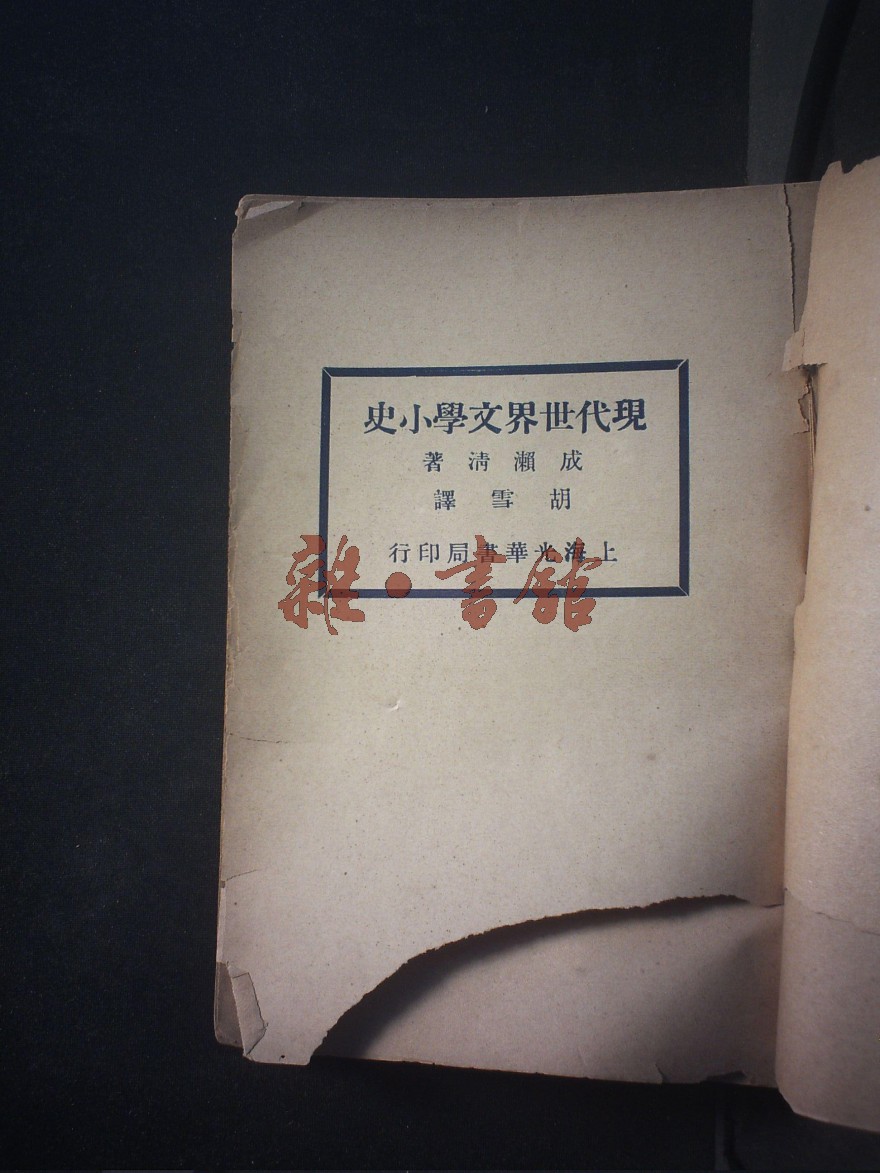 現代世界文學小史
成瀨清著
胡雪譯
上海光華書局印行
雜·書館